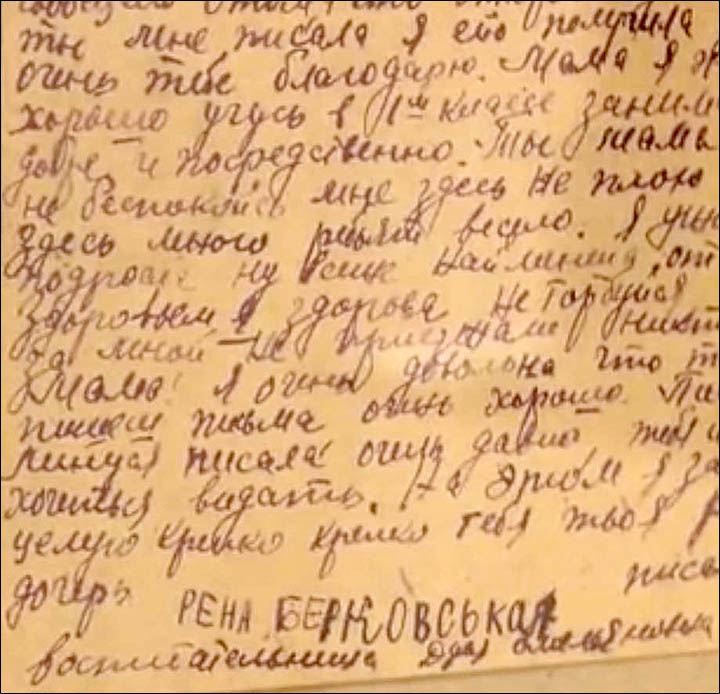 ты мне писала я его получила
очень тебе благодарю. Мама я
хорошо учусь в 1ом классе заним
добре и посредственно. Ты мама
не беспокойсь мне здесь не плохо
здесь много весело. Я
ну
здоровьем я здорова не горбуйся
за мной не приезжали никт
Мама! я очень довольна что т
пишеш письма очень хорошо. Пи
писала очень давно тебя
хочеться видать. На этом я за
целую крепко крепко тебя твоя
дочерь писа
РЕНА БЕРКОВСЬКАЯ
воспитательница